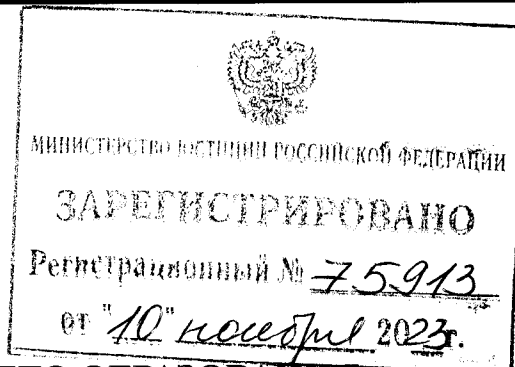 МИНИСТЕРСТВО ЮСТИЦИИ РОССИЙСКОЙ ФЕДЕРАЦИИ
ЗАРЕГИСТРИРОВАНО
Регистрационный № 75913
от "10" ноября 2023г.